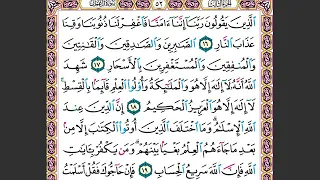 ٱلَّذِينَ يَقُولُونَ رَبَّنَآ إِنَّنَآ ءَامَنَّا فَٱغْفِرْ لَنَا ذُنُوبَنَا وَقِنَا
عَذَابَ ٱلنَّارِ ١٦ ٱلصَّٰبِرِينَ وَٱلصَّٰدِقِينَ وَٱلْقَٰنِتِينَ
وَٱلْمُنفِقِينَ وَٱلْمُسْتَغْفِرِينَ بِٱلْأَسْحَارِ ١٧ شَهِدَ
ٱللَّهُ أَنَّهُۥ لَآ إِلَٰهَ إِلَّا هُوَ وَٱلْمَلَٰٓئِكَةُ وَأُو۟لُوا۟ ٱلْعِلْمِ قَآئِمًۢا بِٱلْقِسْطِ
لَآ إِلَٰهَ إِلَّا هُوَ ٱلْعَزِيزُ ٱلْحَكِيمُ ١٨ إِنَّ ٱلدِّينَ عِندَ
ٱللَّهِ ٱلْإِسْلَٰمُ وَمَا ٱخْتَلَفَ ٱلَّذِينَ أُوتُوا۟ ٱلْكِتَٰبَ إِلَّا مِنۢ
بَعْدِ مَا جَآءَهُمُ ٱلْعِلْمُ بَغْيًۢا بَيْنَهُمْ وَمَن يَكْفُرْ بِـَٔايَٰتِ
ٱللَّهِ فَإِنَّ ٱللَّهَ سَرِيعُ ٱلْحِسَابِ ١٩ فَإِنْ حَآجُّوكَ فَقُلْ أَسْلَمْتُ